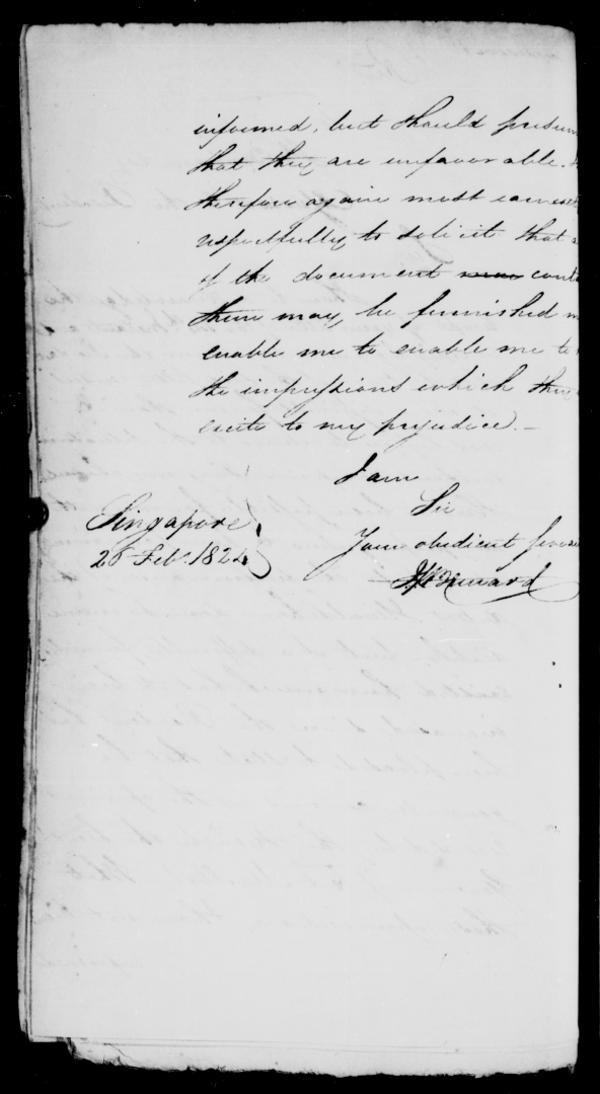 informed, but should presum
that they are unfavorable.
therefore again most earnest
respectfully to solicit that
of the document conta
them may be furnished m
enable me to enable me to
the impressions which they
excite to my prejudice. —
I am
Sir
Your obedient Serva
Singapore
26 Feb. 1824